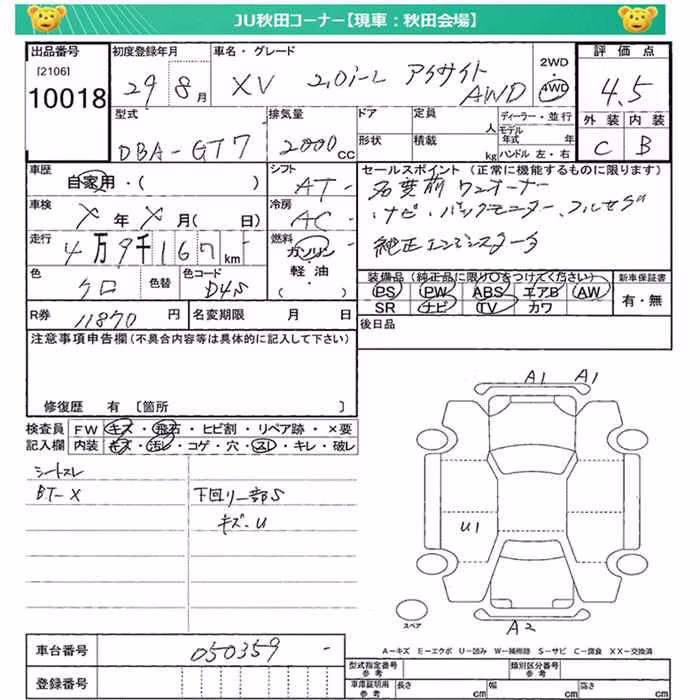 JU秋田コーナー【現車：秋田会場】
出品番号
[2106]
10018
初度登録年月
29 8月
車名・グレード
XV 2.0i-L アイサイト
AWD
2WD
4WD
評価点
4.5
外装 内装
C B
型式
DBA-GT7
排気量
2000cc
ドア
形状
定員
人
積載
kg
ディーラー・並行
モデル年式 年
ハンドル 左・右
車歴
自家用・( )
シフト
AT-
セールスポイント（正常に機能するものに限ります）
名変前 ワンオーナー
ナビ・バックモニター、フルセグ
純正エンジンスターター
車検
X年X月( 日)
冷房
AC-
走行
4万9千167km
燃料
ガソリン
軽油
( )
色
クロ
色替
色コード
D4S
装備品（純正品に限り○をつけてください）
PS PW ABS エアB AW
SR ナビ TV カワ
新車保証書
有・無
R券
11870円
名変期限 月 日
後日品
注意事項申告欄（不具合内容等は具体的に記入して下さい）
修復歴 有〔箇所 〕
検査員
記入欄
FW キズ・飛石・ヒビ割・リペア跡・×要
内装 キズ・汚レ・コゲ・穴・スレ・キレ・破レ
シートスレ
BT-X
下回リ一部S
キズ・U
A1 A1
U1
A2
スペア
A－キズ E－エクボ U－凹み W－補修跡 S－サビ C－腐食 XX－交換済
車台番号
050359 -
登録番号
型式指定番号
参考
類別区分番号
参考
車庫証明用
参考
長さ cm 幅 cm 高さ cm